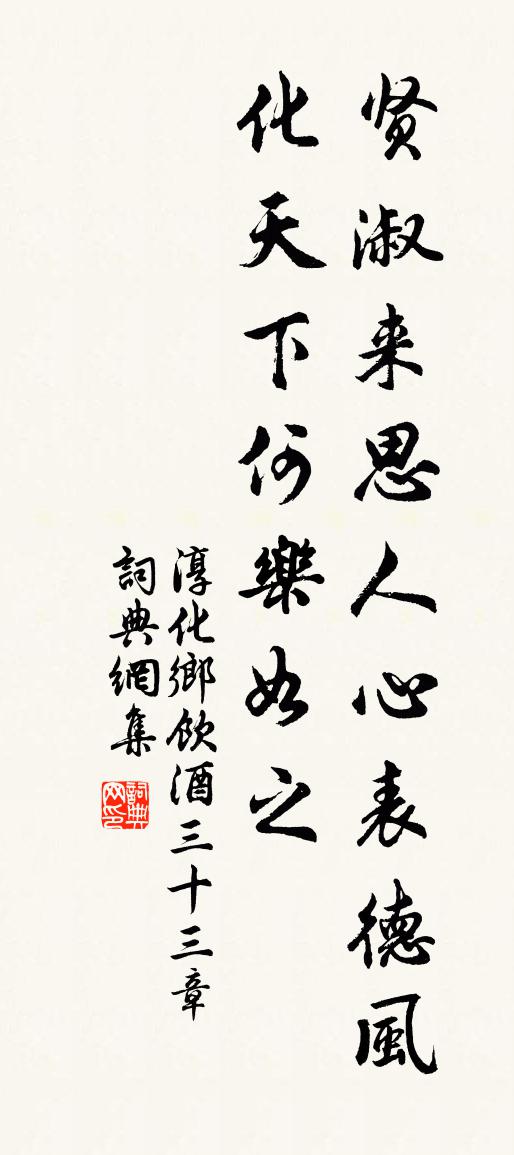 贤淑来思人心表德風
化天下何樂如之
淳化鄉飲酒三十三章
詞典網集
詞典网印